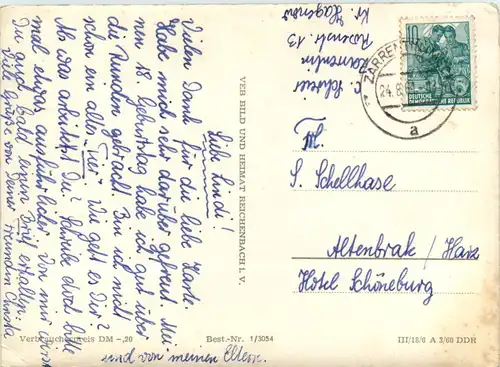 Liebe Lindi!
Vielen Dank für die liebe Karte.
Habe mich sehr darüber gefreut. Mei
nen 18. Geburtstag habe ich gut über
die Runden gebracht. Bin ich nicht
schon ein altes "Tier". Wie geht es Dir?
Na was arbeitest Du? Schreibe doch bitte
mal etwas ausführlicher. Von mir wirst
Du auch bald einen Brief erhalten.
Viele Grüße von Deiner Freundin Christa
und von meinen Eltern.
VEB BILD UND HEIMAT REICHENBACH I. V.
Verbraucherpreis DM -,20
Best.-Nr. 1/3054
Zarrentin
Rosenstr. 13
Kr. Hagenow
ZARRENTIN
24.8.
a
10
DEUTSCHE
DEMOKRATISCHE REPUBLIK
S. Schellhase
Altenbrak / Harz
Hotel Schöneburg
III/18/6 A 3/60 DDR